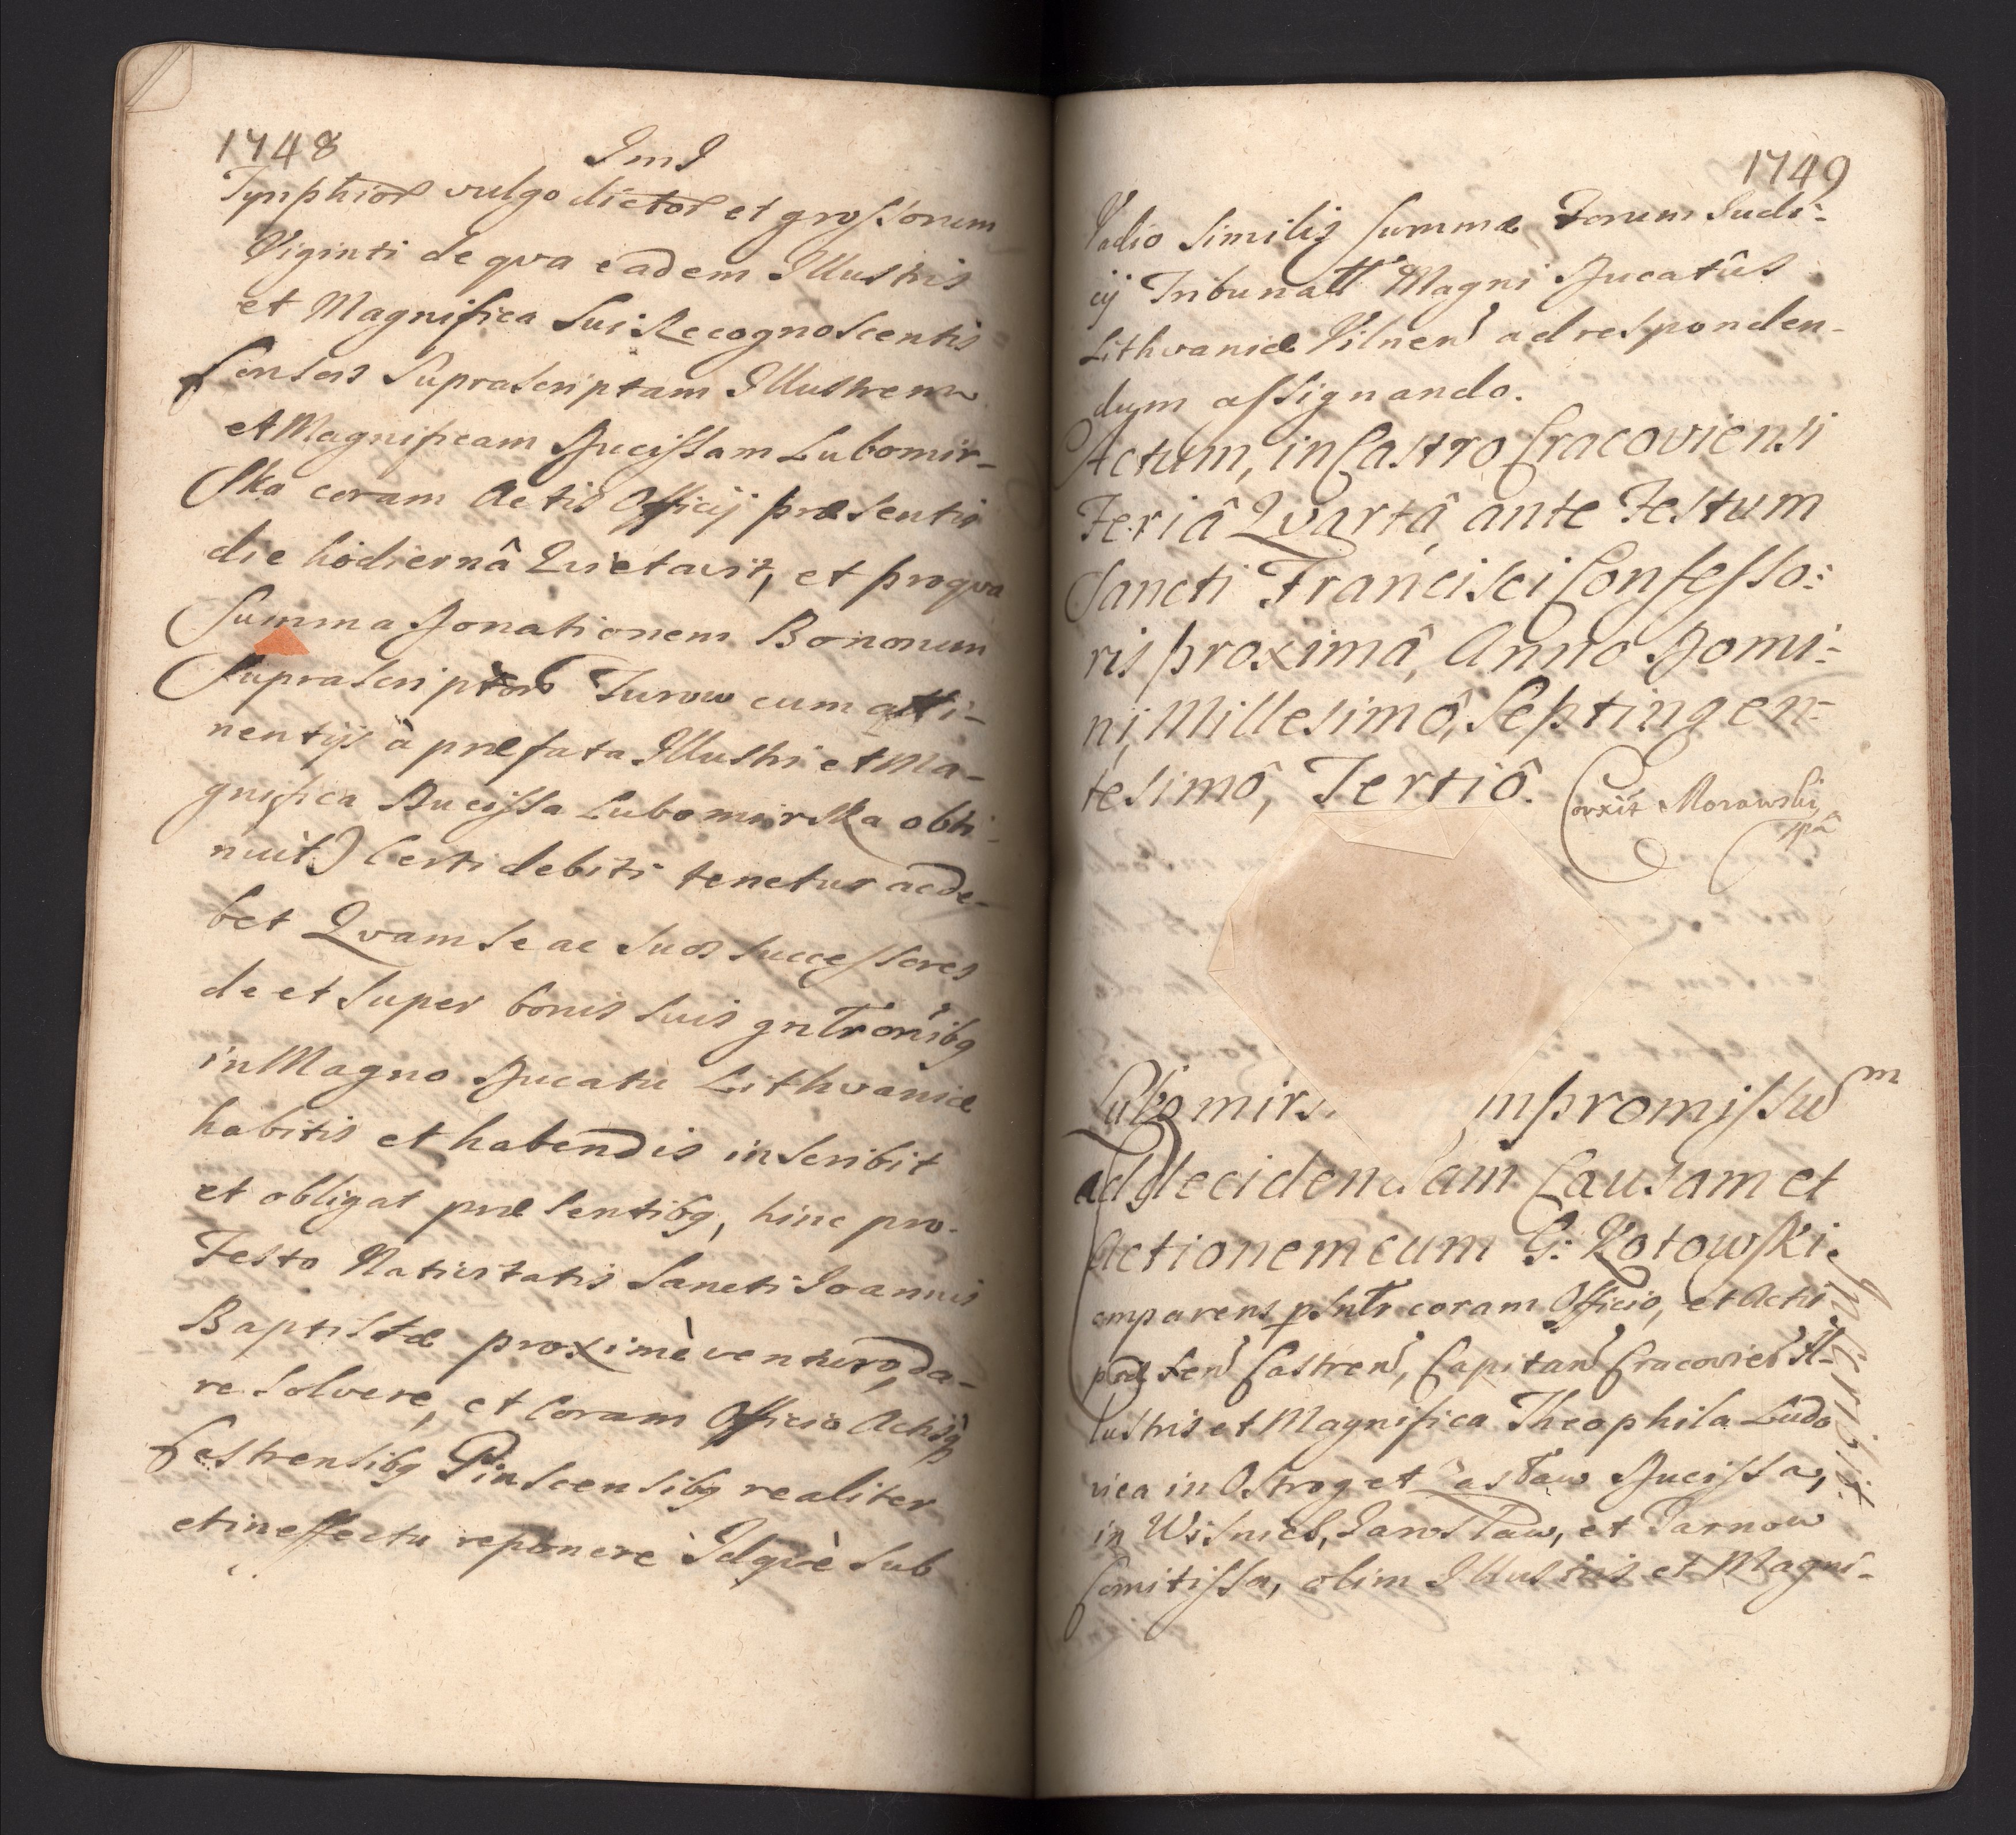 1748
ImI
Tynphior vulgo dictor et grossorum
Viginti de qva eadem Illustris
et Magnifica Sui Recognoscentis
Consors Suprascriptam Illustrem
et Magnificam Ducissam Lubomir-
Ska coram Actis Officij præsentis
die hodiernâ Quietavit, et pro qva
Summa Donationem Bonorum
Suprascriptor Turow cum atti-
nentijs à præfata Illustri et Ma-
gnifica Ducissa Lubomirska obti-
nuit) Certi debiti tenetur ac de-
bet Qvam Se ac Suos Successores
de et Super bonis Suis gnlr onibq
in Magno Ducatu Lithvaniæ
habitis et habendis inscribit
et obligat præsentibq, hinc pro
Festo Nativitatis Sancti Joannis
Baptistæ proximè venturo, da-
re Solvere, et Coram Officio Actisq
Castrensibq Pinscensibq realiter
et in effectu reponere Idqvè Sub
1749
Vadio Similis Summæ Forum Judi-
cij Tribunall Magni Ducatûs
Lithvaniæ Vilnen ad responden-
dum assignando.
Actum, in Castro Cracoviensi
Feriâ Qvartâ, ante Festum
Sancti Francisci Confesso:
ris proximâ, Anno Domi:
ni, Millesimô, Septingen:
tesimô, Tertiô.
Corxit Morawski
mpâ
Lubomirs. mpromissum
ad decidendam Causam et
Actionem cum G: Kotowski.
Inscribit.
omparens psntr coram Officio, et Actis
præsen Castren, Capitan Cracovien Il-
lustris et Magnifica Theophila Ludo
vica in Ostrog et Zasław Ducissa,
in Wisnicz, Jarosław, et Tarnow
Comitissa, olim Illustris et Magni-